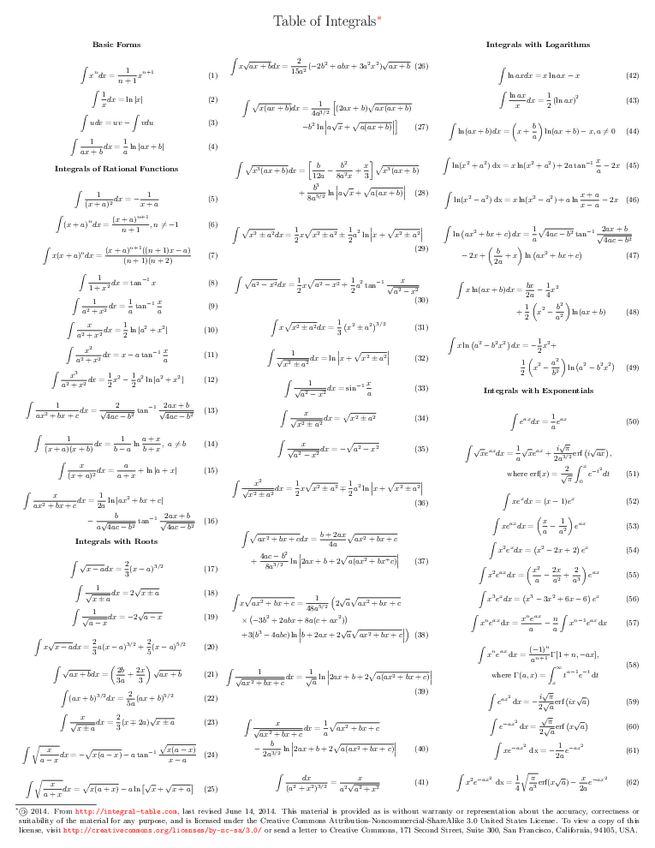 Table of Integrals*
Basic Forms
∫ xⁿdx = 1/(n+1) xⁿ⁺¹ (1)
∫ 1/x dx = ln |x| (2)
∫ udv = uv − ∫ vdu (3)
∫ 1/(ax + b) dx = 1/a ln |ax + b| (4)
Integrals of Rational Functions
∫ 1/(x + a)² dx = − 1/(x + a) (5)
∫ (x + a)ⁿdx = (x + a)ⁿ⁺¹/(n + 1), n ≠ −1 (6)
∫ x(x + a)ⁿdx = (x + a)ⁿ⁺¹((n + 1)x − a)/((n + 1)(n + 2)) (7)
∫ 1/(1 + x²) dx = tan⁻¹ x (8)
∫ 1/(a² + x²) dx = 1/a tan⁻¹ x/a (9)
∫ x/(a² + x²) dx = 1/2 ln |a² + x²| (10)
∫ x²/(a² + x²) dx = x − a tan⁻¹ x/a (11)
∫ x³/(a² + x²) dx = 1/2 x² − 1/2 a² ln |a² + x²| (12)
∫ 1/(ax² + bx + c) dx = 2/√(4ac − b²) tan⁻¹ (2ax + b)/√(4ac − b²) (13)
∫ 1/((x + a)(x + b)) dx = 1/(b − a) ln (a + x)/(b + x), a ≠ b (14)
∫ x/(x + a)² dx = a/(a + x) + ln |a + x| (15)
∫ x/(ax² + bx + c) dx = 1/2a ln |ax² + bx + c|
− b/(a√(4ac − b²)) tan⁻¹ (2ax + b)/√(4ac − b²) (16)
Integrals with Roots
∫ √(x − a) dx = 2/3 (x − a)^(3/2) (17)
∫ 1/√(x ± a) dx = 2√(x ± a) (18)
∫ 1/√(a − x) dx = −2√(a − x) (19)
∫ x√(x − a) dx = 2/3 a(x − a)^(3/2) + 2/5 (x − a)^(5/2) (20)
∫ √(ax + b) dx = (2b/3a + 2x/3) √(ax + b) (21)
∫ (ax + b)^(3/2) dx = 2/5a (ax + b)^(5/2) (22)
∫ x/√(x ± a) dx = 2/3 (x ∓ 2a)√(x ± a) (23)
∫ √(x/(a − x)) dx = −√(x(a − x)) − a tan⁻¹ √(x(a − x))/(x − a) (24)
∫ √(x/(a + x)) dx = √(x(a + x)) − a ln [√x + √(x + a)] (25)
∫ x√(ax + b) dx = 2/15a² (−2b² + abx + 3a²x²)√(ax + b) (26)
∫ √(x(ax + b)) dx = 1/4a^(3/2) [(2ax + b)√(ax(ax + b))
−b² ln |a√x + √(a(ax + b))|] (27)
∫ √(x³(ax + b)) dx = [b/12a − b²/8a²x + x/3] √(x³(ax + b))
+ b³/8a^(5/2) ln |a√x + √(a(ax + b))| (28)
∫ √(x² ± a²) dx = 1/2 x√(x² ± a²) ± 1/2 a² ln |x + √(x² ± a²)|
(29)
∫ √(a² − x²) dx = 1/2 x√(a² − x²) + 1/2 a² tan⁻¹ x/√(a² − x²)
(30)
∫ x√(x² ± a²) dx = 1/3 (x² ± a²)^(3/2) (31)
∫ 1/√(x² ± a²) dx = ln |x + √(x² ± a²)| (32)
∫ 1/√(a² − x²) dx = sin⁻¹ x/a (33)
∫ x/√(x² ± a²) dx = √(x² ± a²) (34)
∫ x/√(a² − x²) dx = −√(a² − x²) (35)
∫ x²/√(x² ± a²) dx = 1/2 x√(x² ± a²) ∓ 1/2 a² ln |x + √(x² ± a²)|
(36)
∫ √(ax² + bx + c) dx = (b + 2ax)/4a √(ax² + bx + c)
+ (4ac − b²)/8a^(3/2) ln |2ax + b + 2√(a(ax² + bx⁺c))| (37)
∫ x√(ax² + bx + c) = 1/48a^(5/2) (2√a √(ax² + bx + c)
× (−3b² + 2abx + 8a(c + ax²))
+3(b³ − 4abc) ln |b + 2ax + 2√a √(ax² + bx + c)|) (38)
∫ 1/√(ax² + bx + c) dx = 1/√a ln |2ax + b + 2√(a(ax² + bx + c))|
(39)
∫ x/√(ax² + bx + c) dx = 1/a √(ax² + bx + c)
− b/2a^(3/2) ln |2ax + b + 2√(a(ax² + bx + c))| (40)
∫ dx/(a² + x²)^(3/2) = x/(a²√(a² + x²)) (41)
Integrals with Logarithms
∫ ln ax dx = x ln ax − x (42)
∫ ln ax/x dx = 1/2 (ln ax)² (43)
∫ ln(ax + b) dx = (x + b/a) ln(ax + b) − x, a ≠ 0 (44)
∫ ln(x² + a²) dx = x ln(x² + a²) + 2a tan⁻¹ x/a − 2x (45)
∫ ln(x² − a²) dx = x ln(x² − a²) + a ln (x + a)/(x − a) − 2x (46)
∫ ln (ax² + bx + c) dx = 1/a √(4ac − b²) tan⁻¹ (2ax + b)/√(4ac − b²)
− 2x + (b/2a + x) ln (ax² + bx + c) (47)
∫ x ln(ax + b) dx = bx/2a − 1/4 x²
+ 1/2 (x² − b²/a²) ln(ax + b) (48)
∫ x ln (a² − b²x²) dx = −1/2 x² +
1/2 (x² − a²/b²) ln (a² − b²x²) (49)
Integrals with Exponentials
∫ e^(ax) dx = 1/a e^(ax) (50)
∫ √x e^(ax) dx = 1/a √x e^(ax) + i√π/2a^(3/2) erf (i√(ax)),
where erf(x) = 2/√π ∫₀ˣ e^(−t²) dt (51)
∫ xeˣdx = (x − 1)eˣ (52)
∫ xe^(ax) dx = (x/a − 1/a²) e^(ax) (53)
∫ x²eˣdx = (x² − 2x + 2) eˣ (54)
∫ x²e^(ax) dx = (x²/a − 2x/a² + 2/a³) e^(ax) (55)
∫ x³eˣdx = (x³ − 3x² + 6x − 6) eˣ (56)
∫ xⁿe^(ax) dx = xⁿe^(ax)/a − n/a ∫ xⁿ⁻¹e^(ax) dx (57)
∫ xⁿe^(ax) dx = (−1)ⁿ/aⁿ⁺¹ Γ[1 + n, −ax],
where Γ(a, x) = ∫ₓ^∞ t^(a−1)e^(−t) dt (58)
∫ e^(ax²) dx = − i√π/2√a erf (ix√a) (59)
∫ e^(−ax²) dx = √π/2√a erf (x√a) (60)
∫ xe^(−ax²) dx = − 1/2a e^(−ax²) (61)
∫ x²e^(−ax²) dx = 1/4 √(π/a³) erf(x√a) − x/2a e^(−ax²) (62)
* © 2014. From http://integral-table.com, last revised June 14, 2014. This material is provided as is without warranty or representation about the accuracy, correctness or
suitability of the material for any purpose, and is licensed under the Creative Commons Attribution-Noncommercial-ShareAlike 3.0 United States License. To view a copy of this
license, visit http://creativecommons.org/licenses/by-nc-sa/3.0/ or send a letter to Creative Commons, 171 Second Street, Suite 300, San Francisco, California, 94105, USA.